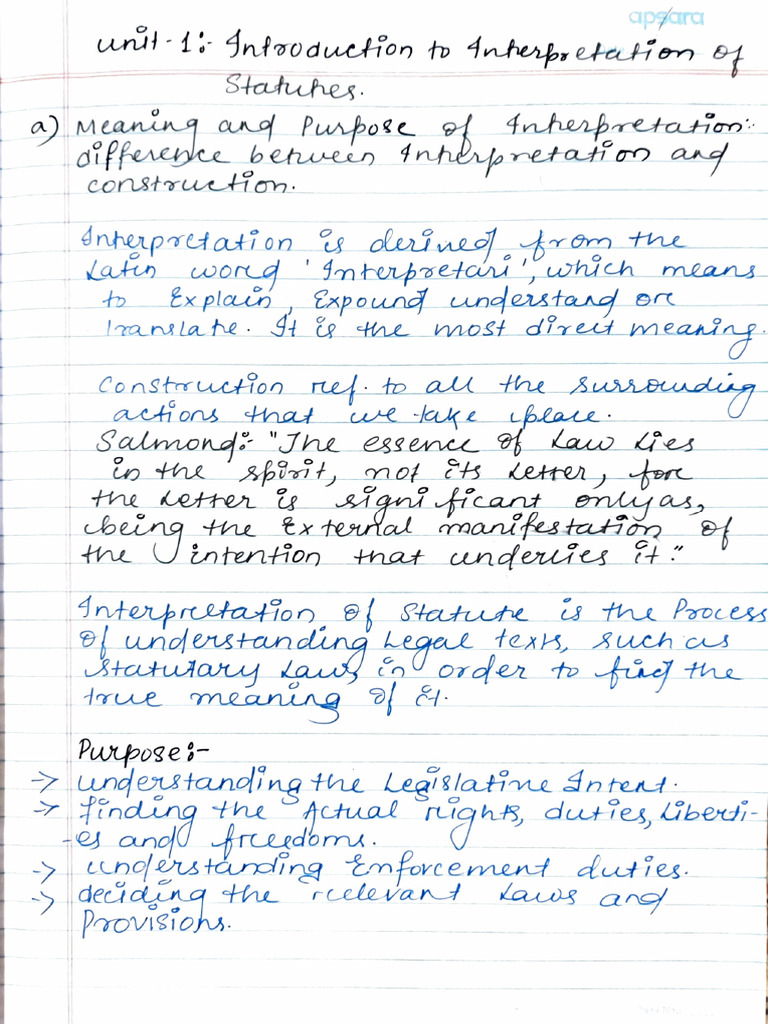 apsara
Unit-1:- Introduction to Interpretation of
Statutes.
a) Meaning and Purpose of Interpretation:
difference between Interpretation and
construction.
Interpretation is derived from the
Latin word 'Interpretari', which means
to Explain, Expound understand or
translate. It is the most direct meaning.
Construction ref. to all the surrounding
actions that we take place.
Salmond:- "The essence of Law Lies
in the spirit, not its Letter, for
the Letter is significant only as,
being the External manifestation of
the intention that underlies it."
Interpretation of Statute is the Process
of understanding Legal texts, such as
statutary Laws in order to find the
true meaning of it.
Purpose:-
-> understanding the Legislative Intent.
-> finding the Actual rights, duties, Liberti-
-es and freedoms.
-> understanding Enforcement duties.
-> deciding the relevant Laws and
Provisions.